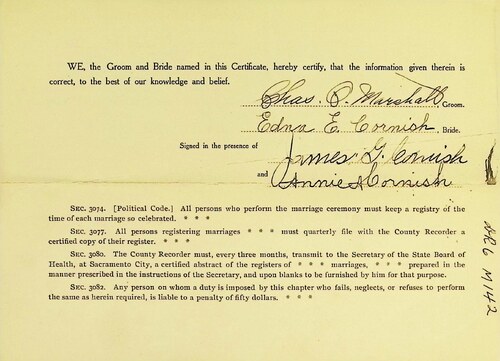 WE, the Groom and Bride named in this Certificate, hereby certify, that the information given therein is
correct, to the best of our knowledge and belief.
Chas. P. Marshall, Groom.
Edna E. Cornish, Bride.
Signed in the presence of James G. Cornish
and Annie A Cornish
SEC. 3074. [Political Code.] All persons who perform the marriage ceremony must keep a registry of the
time of each marriage so celebrated. * * *
SEC. 3077. All persons registering marriages * * * must quarterly file with the County Recorder a
certified copy of their register. * * *
SEC. 3080. The County Recorder must, every three months, transmit to the Secretary of the State Board of
Health, at Sacramento City, a certified abstract of the registers of * * * marriages, * * * prepared in the
manner prescribed in the instructions of the Secretary, and upon blanks to be furnished by him for that purpose.
SEC. 3082. Any person on whom a duty is imposed by this chapter who fails, neglects, or refuses to perform
the same as herein required, is liable to a penalty of fifty dollars. * * *
M142